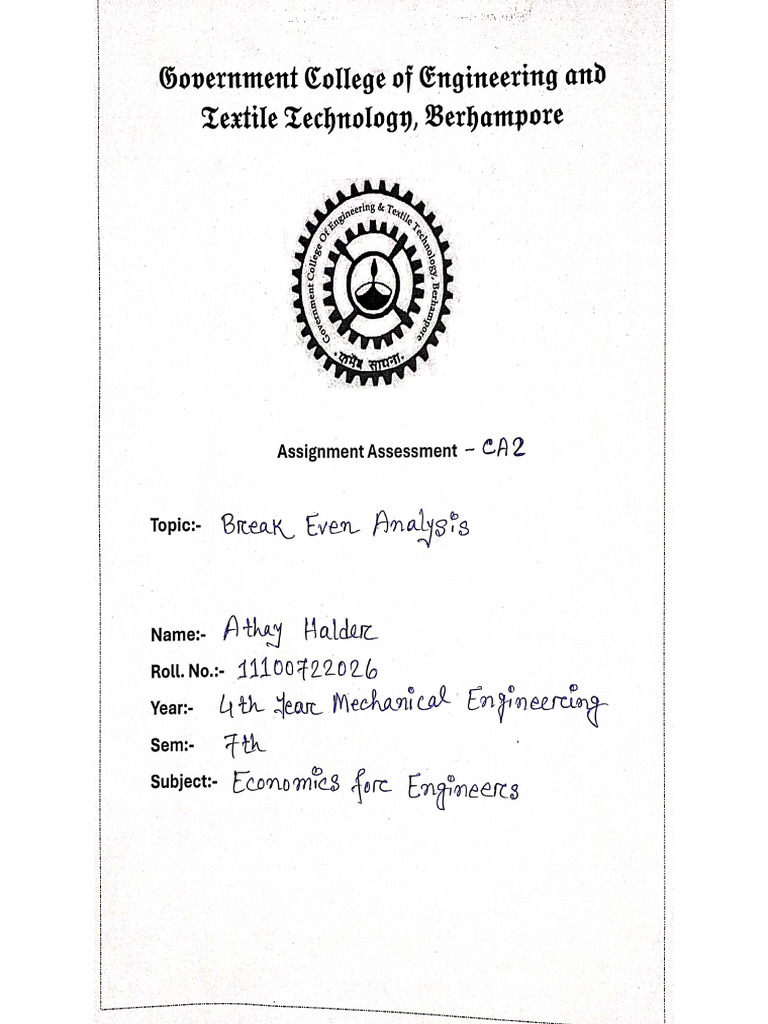 Government College of Engineering and
Textile Technology, Berhampore
Government College Of Engineering & Textile Technology, Berhampore
कर्मैब साधना
Assignment Assessment - CA2
Topic:- Break Even Analysis
Name:- Athay Halder
Roll. No.:- 11100722026
Year:- 4th Year Mechanical Engineering
Sem:- 7th
Subject:- Economics for Engineers